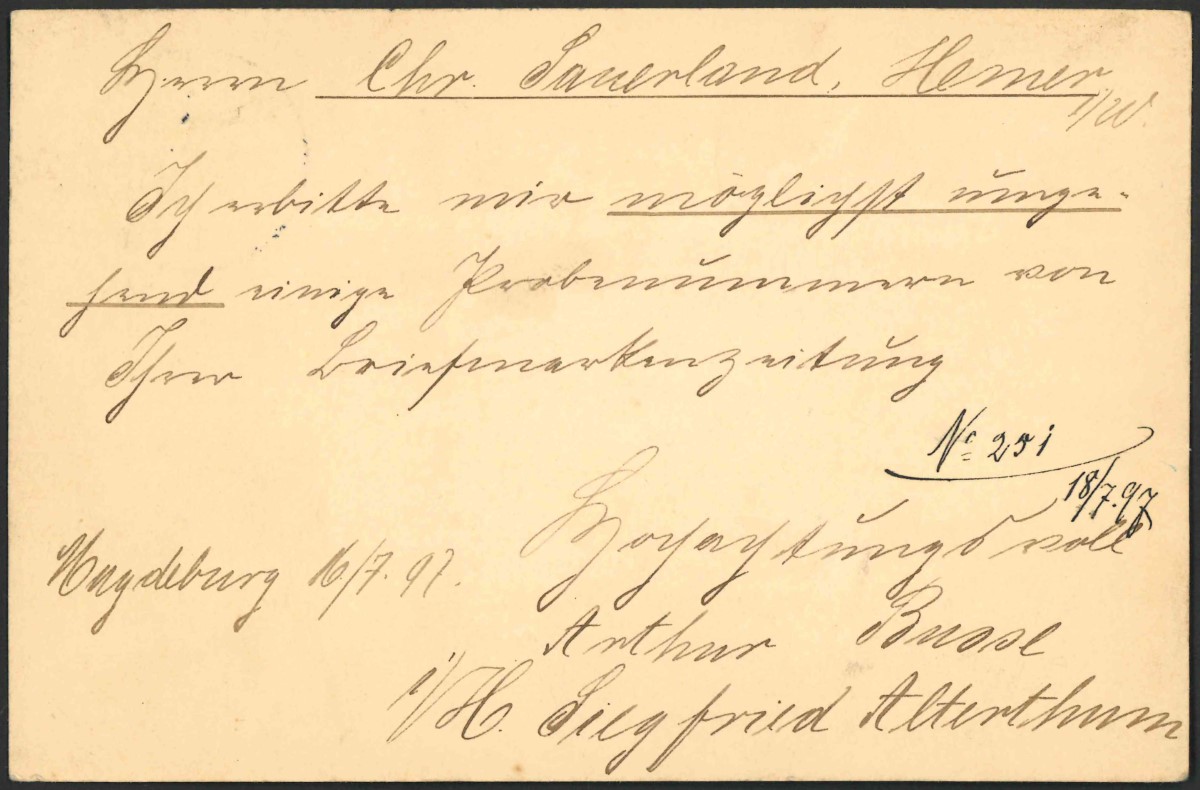 Herrn Chr. Sauerland, Hemer
i/W.
Ich erbitte mir möglichst umge-
hend einige Probenummern von
Ihrer Briefmarkenzeitung
No 251
18/7.97
Hochachtungsvoll
Magdeburg 16/7.97.
Arthur Busse
i/H. Siegfried Alterthum